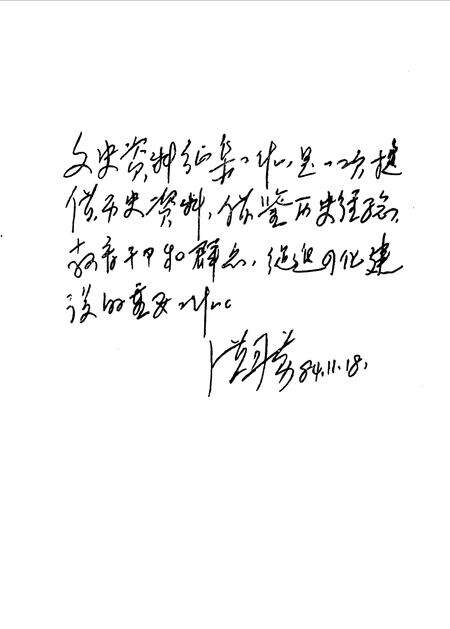 文史资料征集工作,是一项提
供历史资料,借鉴历史经验,
教育干部和群众,促进四化建
设的重要工作。
84.11.18.